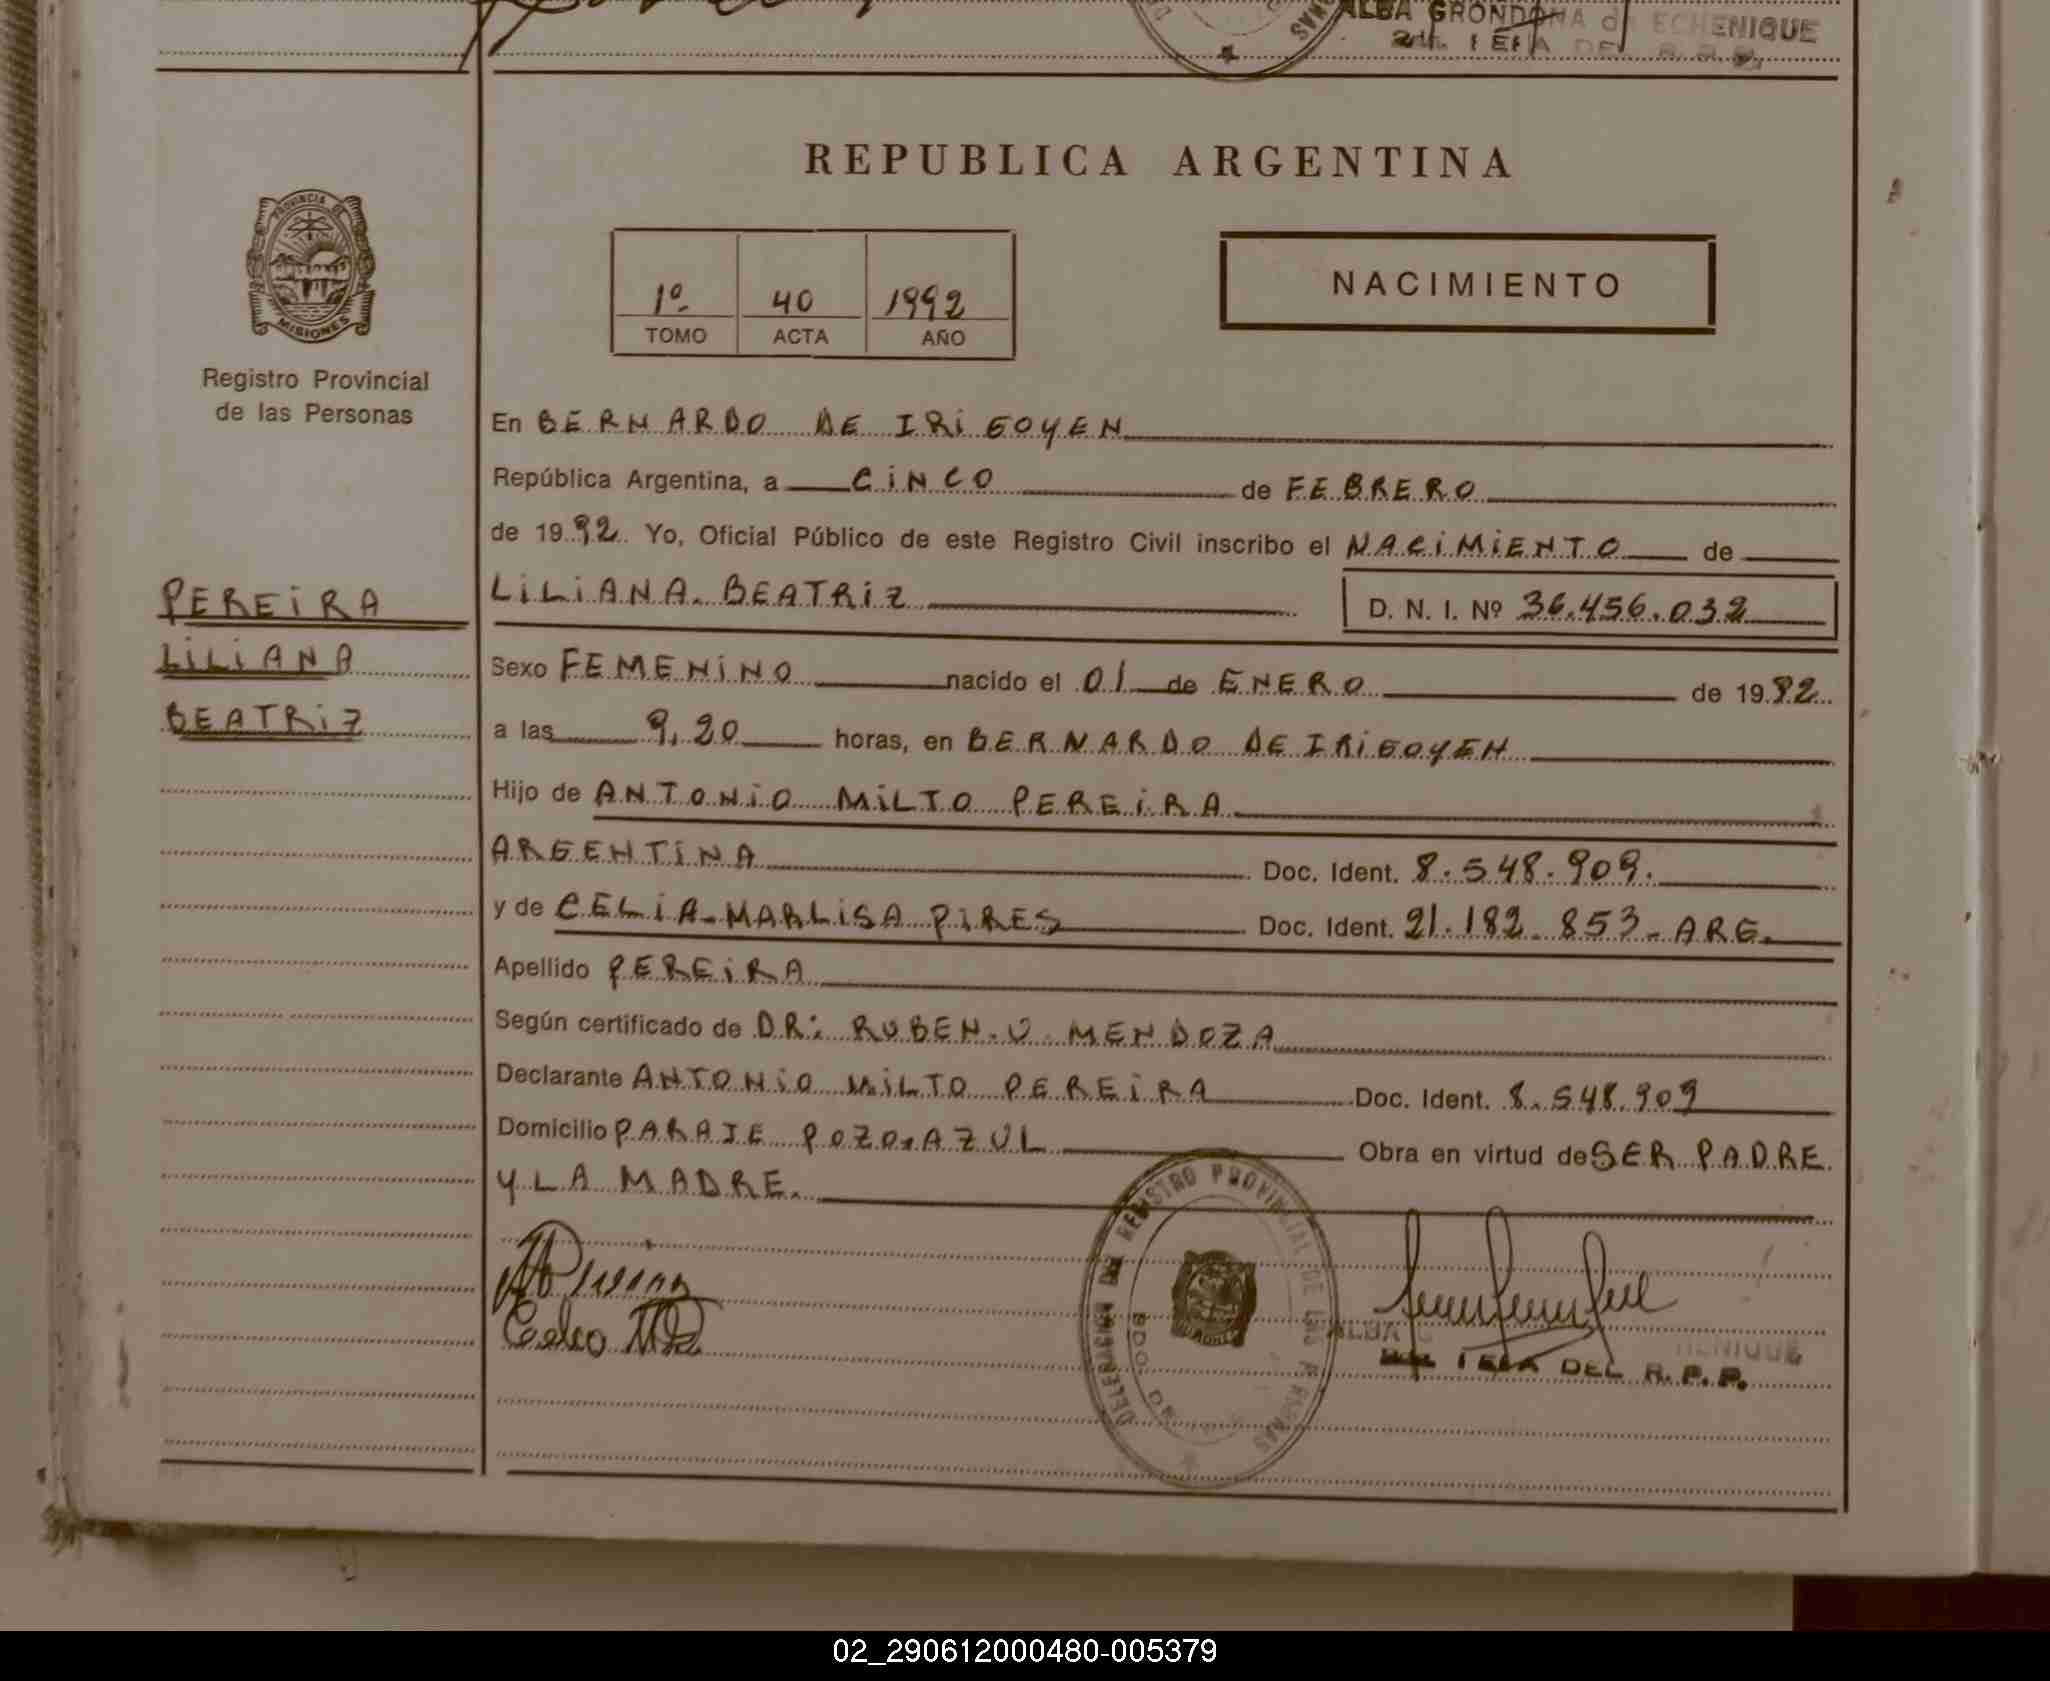 ALBA GRONDONA de ECHENIQUE
JEFA DEL R.P.P.
REPUBLICA ARGENTINA
PROVINCIA DE
MISIONES
Registro Provincial
de las Personas
1º 40 1992
TOMO ACTA AÑO
NACIMIENTO
En BERNARDO DE IRIGOYEN
República Argentina, a CINCO de FEBRERO
de 1992 Yo, Oficial Público de este Registro Civil inscribo el NACIMIENTO de
PEREIRA
LILIANA
BEATRIZ
LILIANA BEATRIZ D. N. I. Nº 36.456.032
Sexo FEMENINO nacido el 01 de ENERO de 1992
a las 9,20 horas, en BERNARDO DE IRIGOYEN
Hijo de ANTONIO MILTO PEREIRA
ARGENTINA Doc. Ident. 8.548.909.
y de CELIA-MARLISA PIRES Doc. Ident. 21.182.853-ARG.
Apellido PEREIRA
Según certificado de DR: RUBEN.U.MENDOZA
Declarante ANTONIO MILTO PEREIRA Doc. Ident. 8.548.909
Domicilio PARAJE POZO AZUL Obra en virtud de SER PADRE
Y LA MADRE.
DELEGACION DEL REGISTRO PROVINCIAL DE LAS PERSONAS
BDO. DE
ALBA HENIQUE
JEFA DEL R.P.P.
02_290612000480-005379